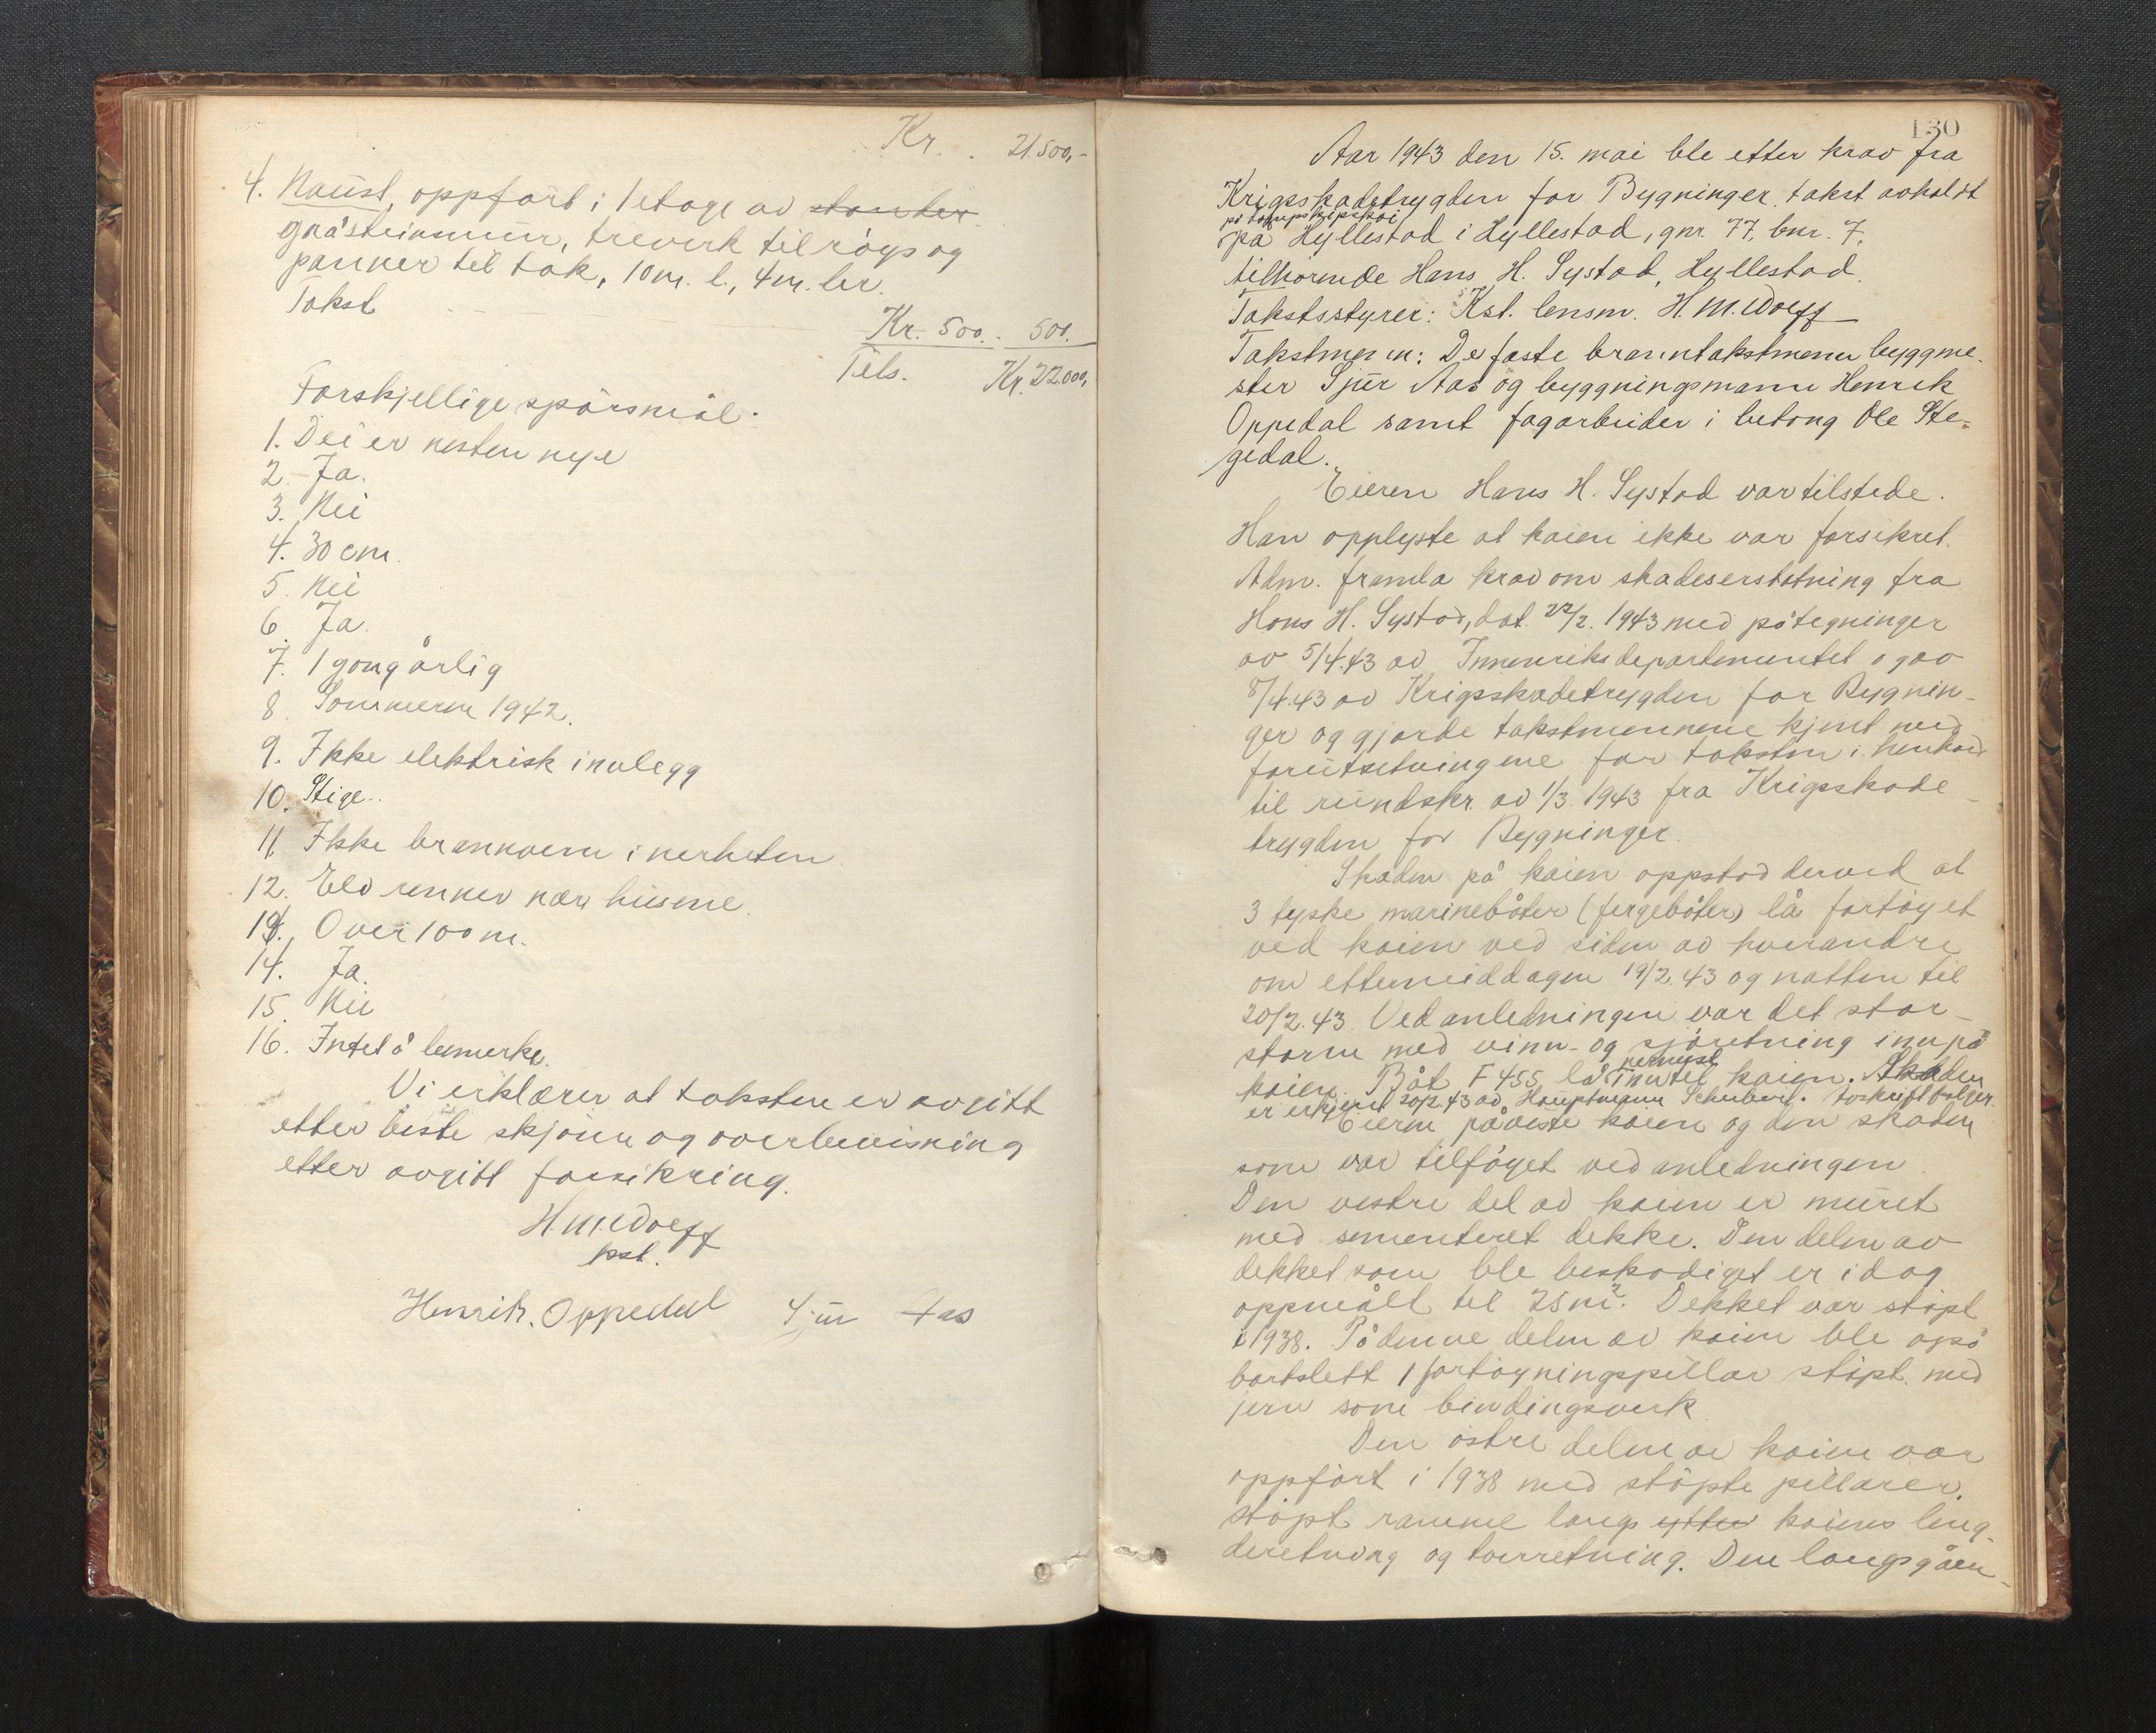 Kr. . 21.500,-
4. Naust, oppført i 1 etage av stander
gråsteinsmur, treverk til røys og
panner til tak, 10 m. l., 4 m. br.
Takst
Kr. 500.- 500.
Tils. Kr. 22.000,
Forskjellige spörsmål.
1. Dei er nesten nye
2. Ja.
3. Nei
4. 30 cm.
5. Nei
6. Ja.
7. 1 gong årlig
8. Sommeren 1942.
9. Ikke elektrisk innlegg
10. Stige..
11. Ikke brannvern i nerheten
12. Elv renner nær husene.
13. Over 100 m.
14. Ja.
15. Nei
16. Intet å bemerke.
Vi erklærer at taksten er avgitt
etter beste skjönn og overbevisning
etter avgitt forsikring.
H. M. Wolff
kst.
Henrik. Oppedal Sjur Aas
130
Aar 1943 den 15. mai ble etter krav fra
Krigsskadetrygden for Bygninger takst avholdt
på dampskipskai
på Hyllestad i Hyllestad, gnr. 77, bnr. 7.
tilhörende Hans H. Systad, Hyllestad.
Takstsstyrer: Kst. lensm. H. M. Wolff
Takstmenn: De faste branntakstmenn byggme-
ster Sjur Aas og byggningsmann Henrik
Oppedal samt fagarbeider i betong Ole Ste-
gedal.
Eieren Hans H. Systad var tilstede.
Han opplyste at kaien ikke var forsikret.
Adm. framla krav om skadeserstatning fra
Hans H. Systad, dat. 22/2. 1943 med påtegninger
av 5/4.43 av Innenriksdepartementet og av
8/4.43 av Krigsskadetrygden for Bygnin-
ger og gjorde takstmennene kjent med
forutsetningene for taksten i henhold
til rundskr. av 1/3. 1943 fra Krigsskade-
trygden for Bygninger.
Skaden på kaien oppstod derved at
3 tyske marinebåter (fergebåter) lå fortöyet
ved kaien ved siden av hverandre
om ettermiddagen 19/2.43 og natten til
20/2.43. Ved anledningen var det stor
storm med vinn- og sjöretning inn på
kaien. Båt F 455 lå nermest inntil kaien. Skaden
er erkjent 20/2.43 av Hauptmann Schubert. Avskrift fölger.
Eieren påviste kaien og den skaden
som var tilföyet ved anledningen.
Den vestre del av kaien er muret
med sementeret dekke. Den delen av
dekket som ble beskadiget er idag
oppmålt til 25 m². Dekket var stöpt
i 1938. På denne delen av kaien ble også
bortslett 1 fortöyningspillar stöpt med
jern som bindingsverk.
Den östre delen av kaien var
oppfört i 1938 med stöpte pillarer.
Stöpt ramme langs ytter kaiens leng-
deretning og tverretning. Den langsgåen-